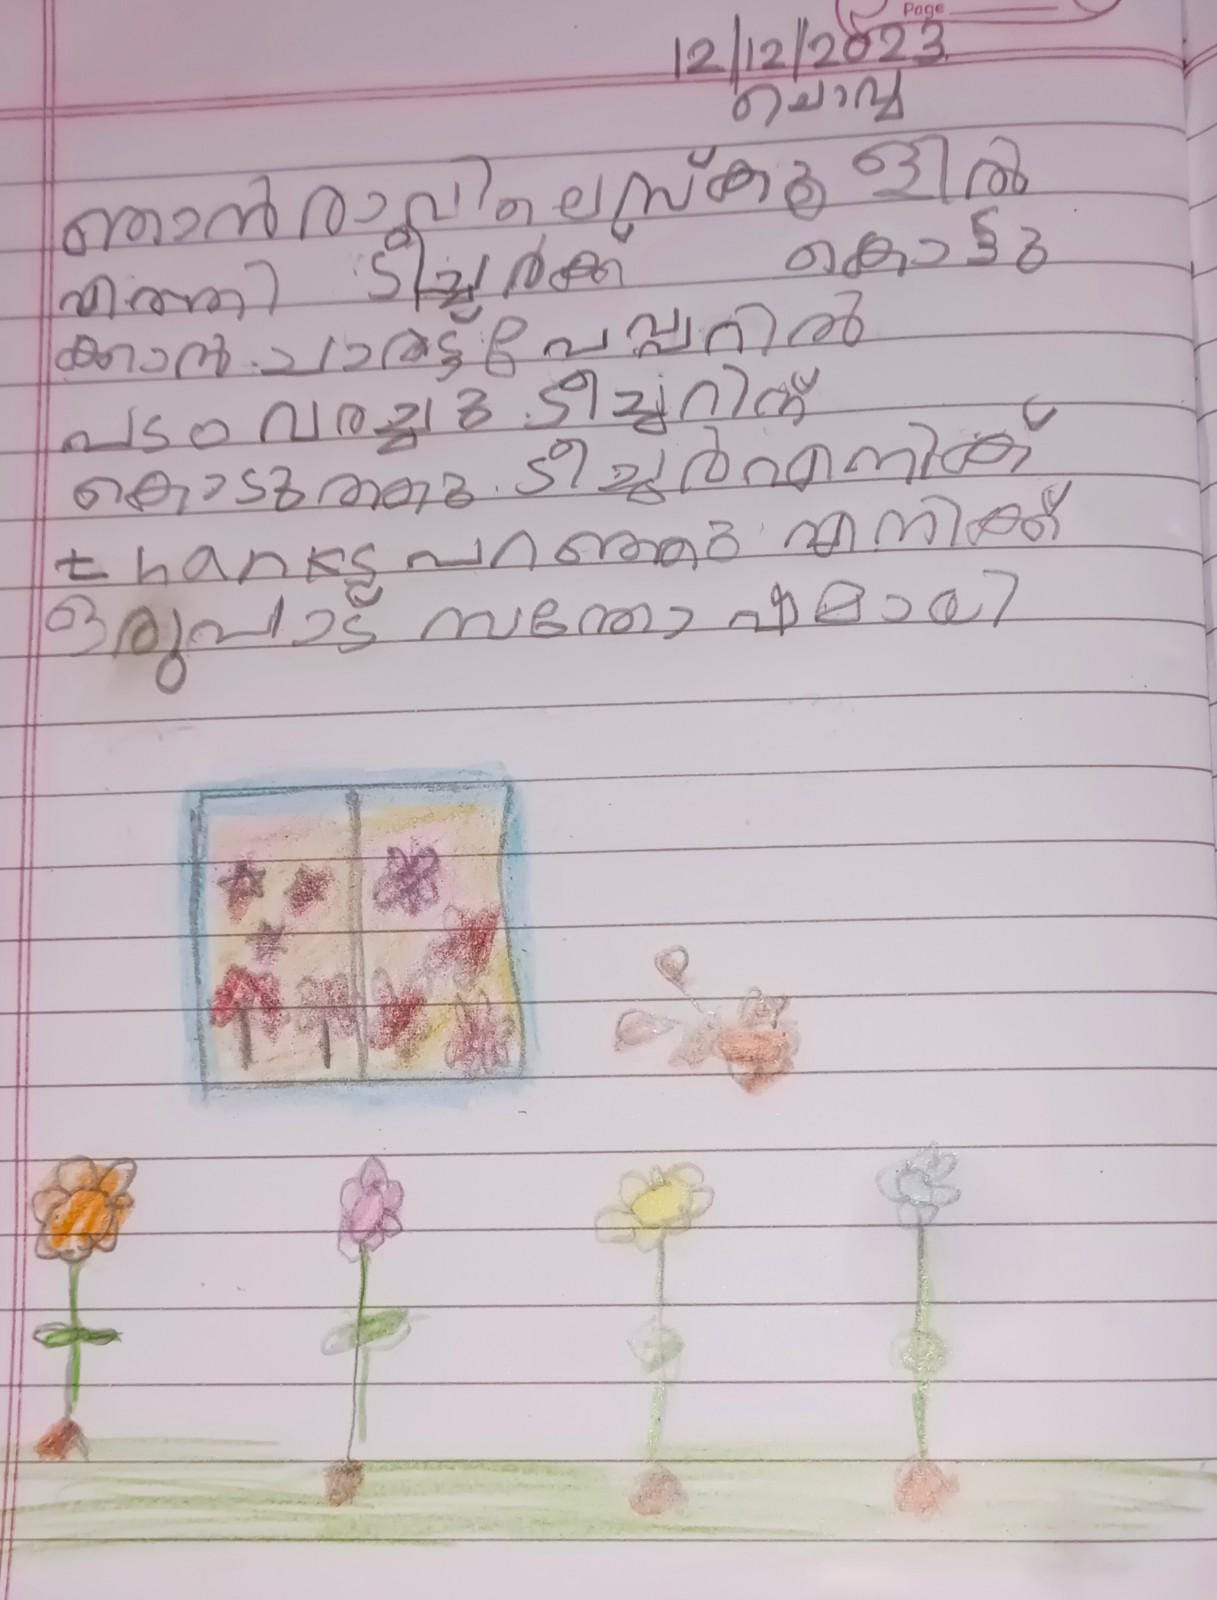 Page
12/12/2023
ചൊവ്വ
ഞാൻ രാവിലെ സ്കുളിൽ
എത്തി ടീച്ചർക്ക് കൊടു
കാൻ ചാർട്ട് പേപ്പറിൽ
പടം വരച്ചു. ടീച്ചറിന്
കൊടുത്തു. ടീച്ചർ എനിക്ക്
thanks പറഞ്ഞു എനിക്ക്
ഒരുപാട് സന്തോഷമായി